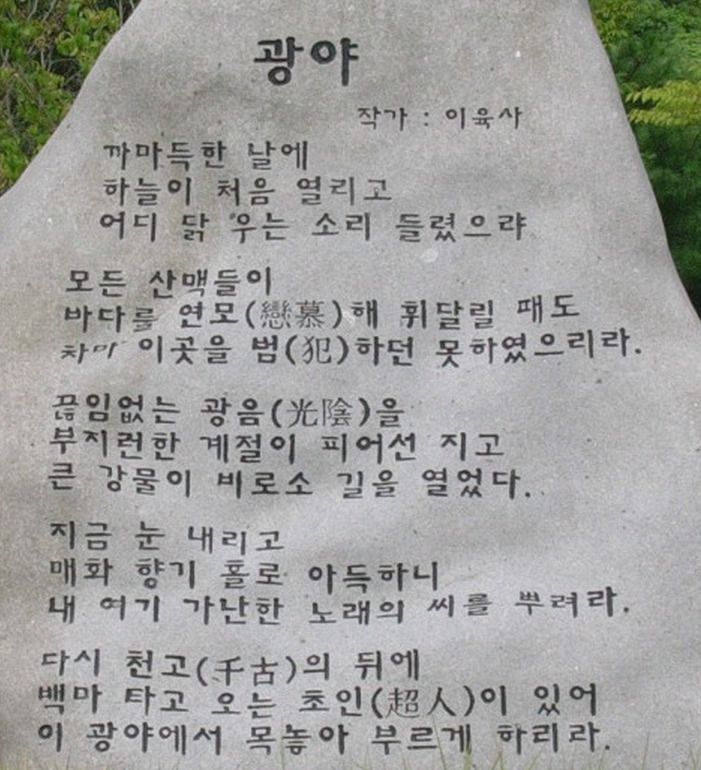 광야
작가 : 이육사
까마득한 날에
하늘이 처음 열리고
어디 닭 우는 소리 들렸으랴
모든 산맥들이
바다를 연모(戀慕)해 휘달릴 때도
차마 이곳을 범(犯)하던 못하였으리라.
끊임없는 광음(光陰)을
부지런한 계절이 피어선 지고
큰 강물이 비로소 길을 열었다.
지금 눈 내리고
매화 향기 홀로 아득하니
내 여기 가난한 노래의 씨를 뿌려라.
다시 천고(千古)의 뒤에
백마 타고 오는 초인(超人)이 있어
이 광야에서 목놓아 부르게 하리라.